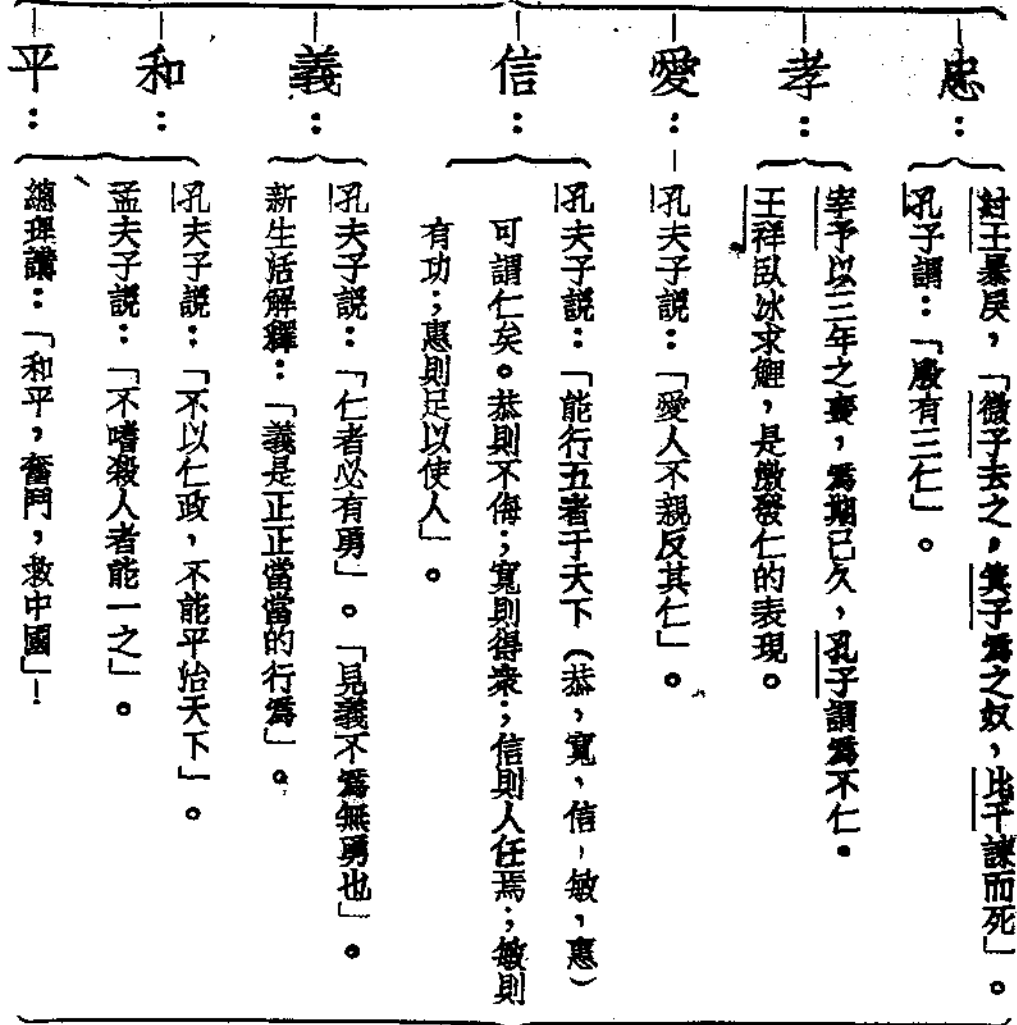 忠：
紂王暴戾，「微子去之，箕子爲之奴，比干諫而死」。
孔子謂：「殷有三仁」。
孝：
宰予以三年之喪，爲期已久，孔子謂爲不仁。
王祥臥冰求鯉，是激發仁的表現。
愛：
孔夫子說：「愛人不親反其仁」。
信：
孔夫子說：「能行五者于天下（恭，寬，信，敏，惠）
可謂仁矣。恭則不侮；寬則得衆；信則人任焉；敏則
有功；惠則足以使人」。
義：
孔夫子說：「仁者必有勇」。「見義不爲無勇也」。
新生活解釋：「義是正正當當的行爲」。
和：
平：
孔夫子說：「不以仁政，不能平治天下」。
孟夫子說：「不嗜殺人者能一之」。
總理講：「和平，奮鬥，救中國」！